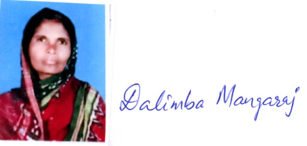 Dalimba Mangaraj